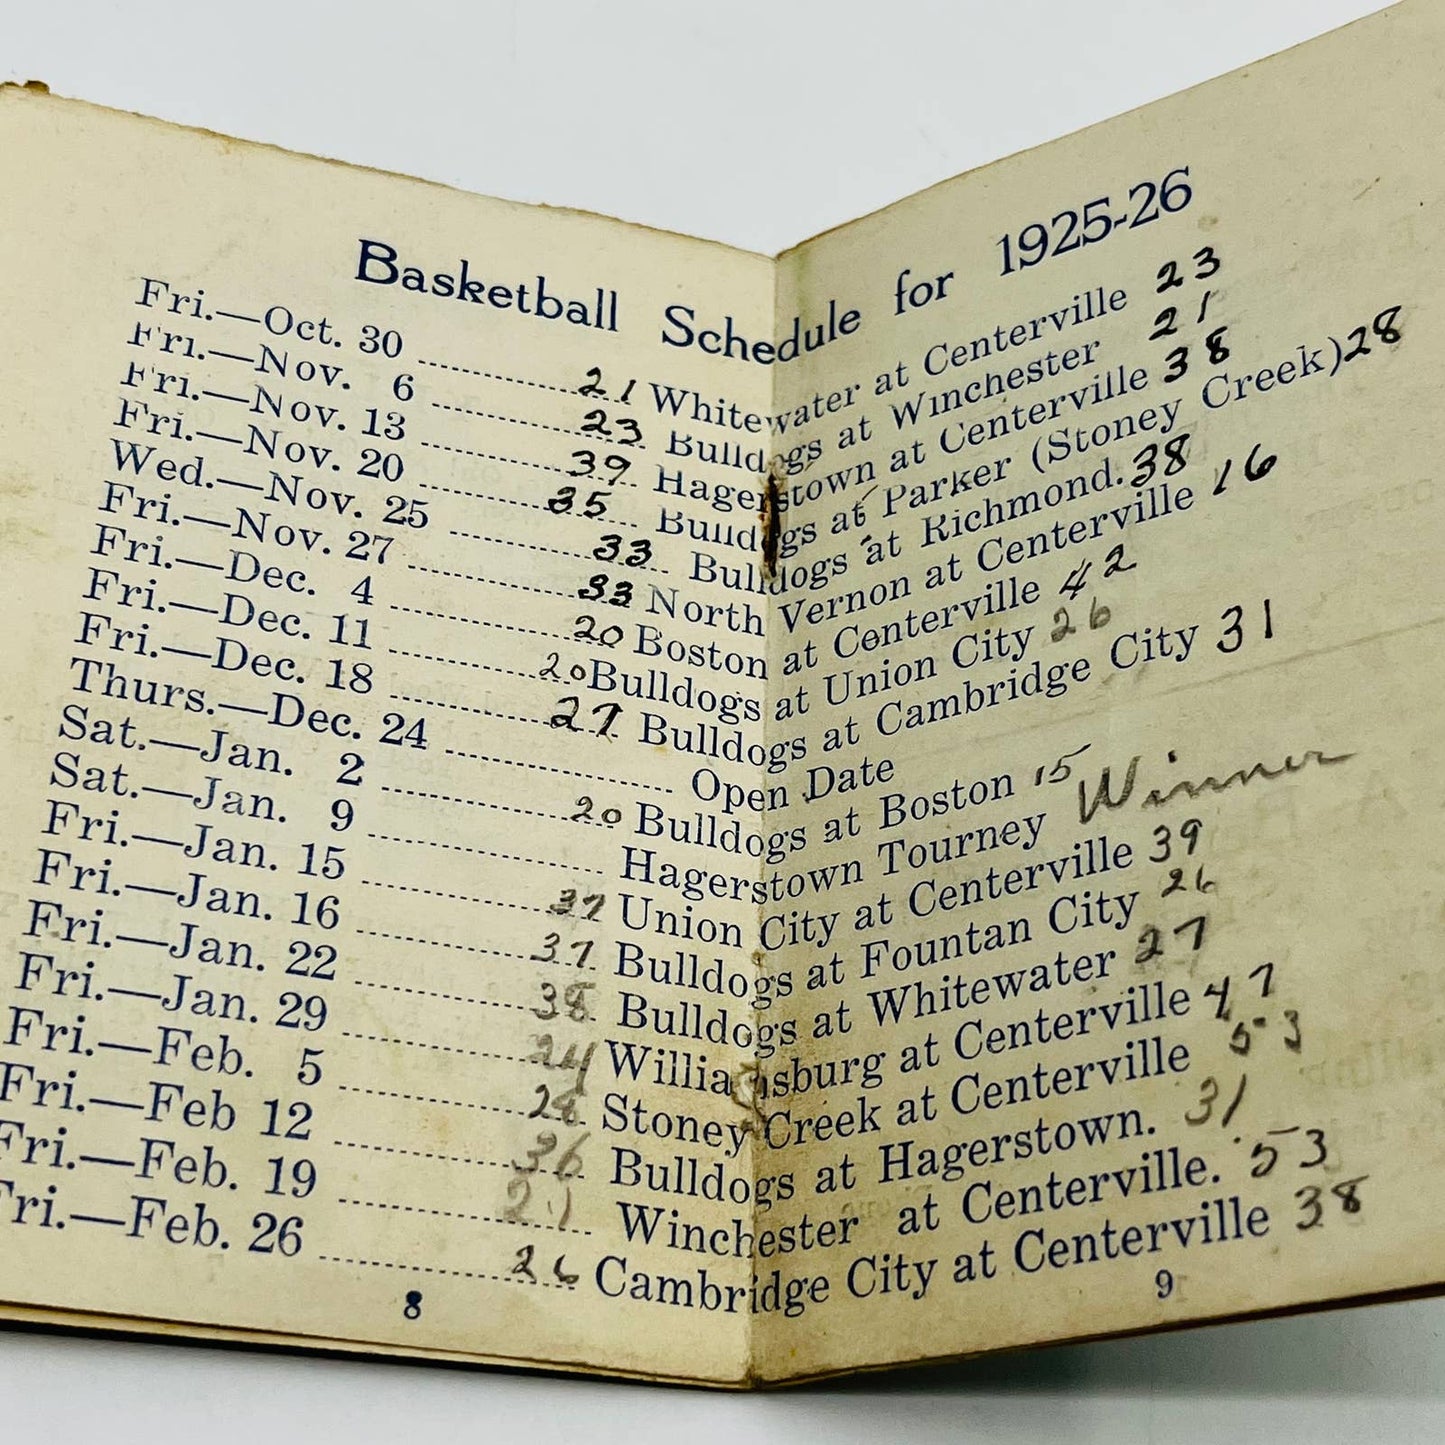 Basketball Schedule for 1925-26
Fri.—Oct. 30 21 Whitewater at Centerville 23
Fri.—Nov. 6 23 Bulldogs at Winchester 21
Fri.—Nov. 13 39 Hagerstown at Centerville 38
Fri.—Nov. 20 35 Bulldogs at Parker (Stoney Creek) 28
Wed.—Nov. 25 33 Bulldogs at Richmond. 38
Fri.—Nov. 27 33 North Vernon at Centerville 16
Fri.—Dec. 4 20 Boston at Centerville 42
Fri.—Dec. 11 20 Bulldogs at Union City 26
Fri.—Dec. 18 27 Bulldogs at Cambridge City 31
Thurs.—Dec. 24 Open Date
Sat.—Jan. 2 20 Bulldogs at Boston 15
Sat.—Jan. 9 Hagerstown Tourney Winner
Fri.—Jan. 15 37 Union City at Centerville 39
Fri.—Jan. 16 37 Bulldogs at Fountan City 26
Fri.—Jan. 22 38 Bulldogs at Whitewater 27
Fri.—Jan. 29 24 Williamsburg at Centerville 47
Fri.—Feb. 5 28 Stoney Creek at Centerville 53
Fri.—Feb 12 36 Bulldogs at Hagerstown. 31
Fri.—Feb. 19 Winchester at Centerville. 53
Fri.—Feb. 26 26 Cambridge City at Centerville 38
8 9